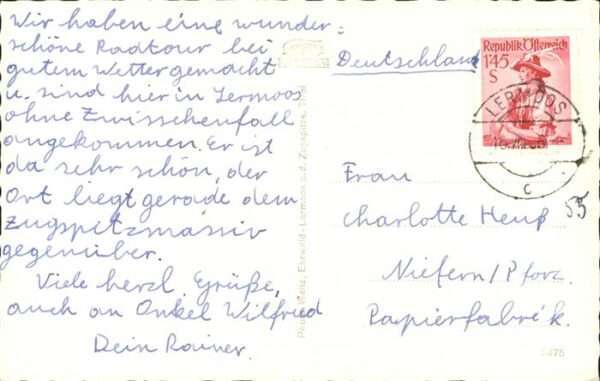 Wir haben eine wunder=
schöne Radtour bei
gutem Wetter gemacht
u. sind hier in Lermoos
ohne Zwischenfall
angekommen. Er ist
da sehr schön, der
Ort liegt gerade dem
Zugspitzmassiv
gegenüber.
Viele herzl. Grüße,
auch an Onkel Wilfried
Dein Rainer.
Ehrwald - Lermoos a.d. Zugspitze, Tirol
Deutschland
Republik Österreich
1'45
S
LERMOOS
c
Frau
Charlotte Heuß
55
Niefern/Pforz.
Papierfabrik.